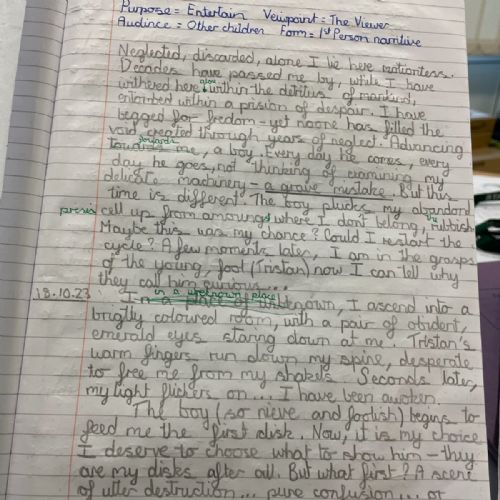 Purpose = Entertain Veiwpoint = The Viewer
Audince = Other children Form = 1st Person narritive
Neglected, discarded, alone I lie here motionless.
Decades have passed me by, while I have
withered here alone within the detritus of mankind,
entombed within a prision of despair. I have
begged for fredom - yet noone has filled the
void created through years of neglect. Advancing
towards me, a boy. Every day he comes, every
day he goes, not thinking of examining my
delicate machinery - a grave mistake. But this
time is different. The boy plucks my abandond
cell up from amoungst where I don't belong, rubbish.
Maybe this was my chance? Could I restart the
cycle? A few moments later, I am in the grasps
of the young, fool (Tristan) now I can tell why
they call him curious...
18.10.23 in a unknown place
In a place of unknown, I ascend into a
brigtly coloured room, with a pair of
emerald eyes staring down at me. Tristan's
warm fingers run down my spine, desperate
to free me from my shakels. Seconds later,
my light flickers on... I have been awoken.
The boy (so nieve and foolish) begins to
feed me the first disk. Now, it is my choice
I deserve to choose what to show him - they
are my disks after all. But what first? A scene
of utter destruction... pure confusion... or